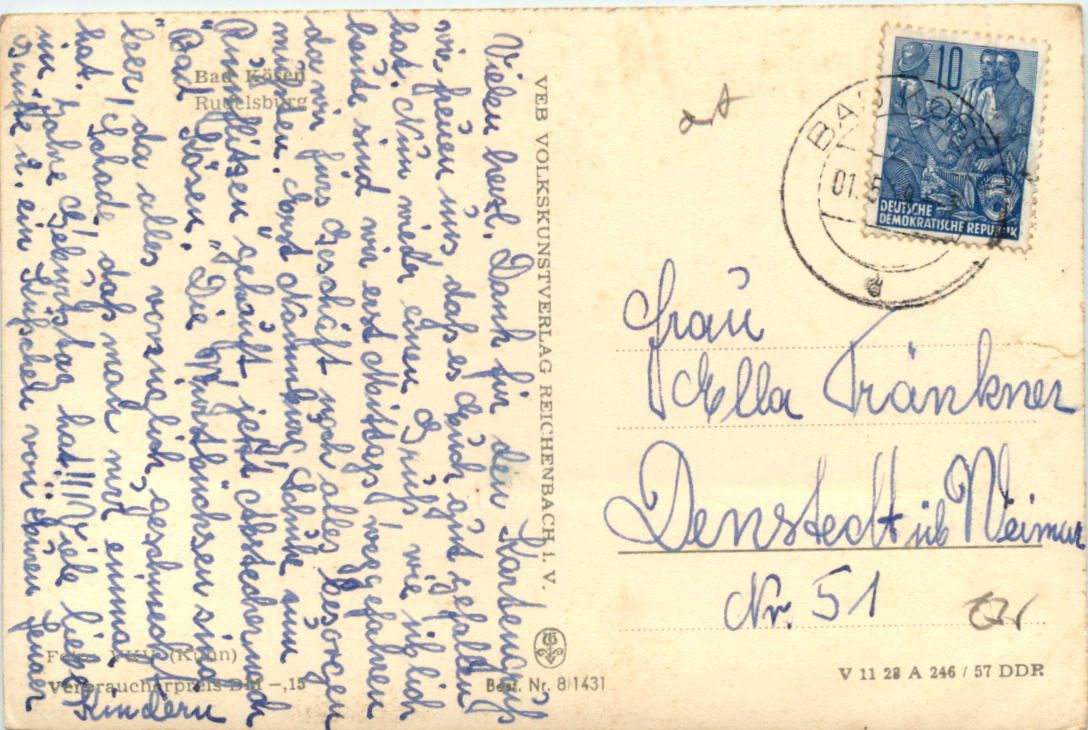 Vielen herzl. Dank für den Kartengruß
wir freuen uns, daß es Euch gut gefallen
hat. Nun wieder einen Gruß, wie üblich
heute sind wir erst Mittags weggefahren
da wir fürs Geschäft noch alles besorgen
mußten. Erst Naumburg Schuhe zum
Rumflitzen gekauft, jetzt Abstecher nach
"Bad Kösen." Die Wurstbüchsen sind
leer, da alles vorzüglich geschmeckt
hat. Schade, daß man nur einmal
im Jahre Geburtstag hat!!! Viele liebe
Grüße u. ein Küßchen von Euren Jenaer
Kindern
Bad Kösen
Rudelsburg
Foto: VKV (Kühn)
Verbraucherpreis DM -,15
Best. Nr. 8/1431
VEB VOLKSKUNSTVERLAG REICHENBACH i. V.
10
DEUTSCHE
DEMOKRATISCHE REPUBLIK
BAD KÖSEN
01.
d
Frau
Ella Tränkner
Denstedt üb Weimar
Nr. 51
V 11 28 A 246 / 57 DDR